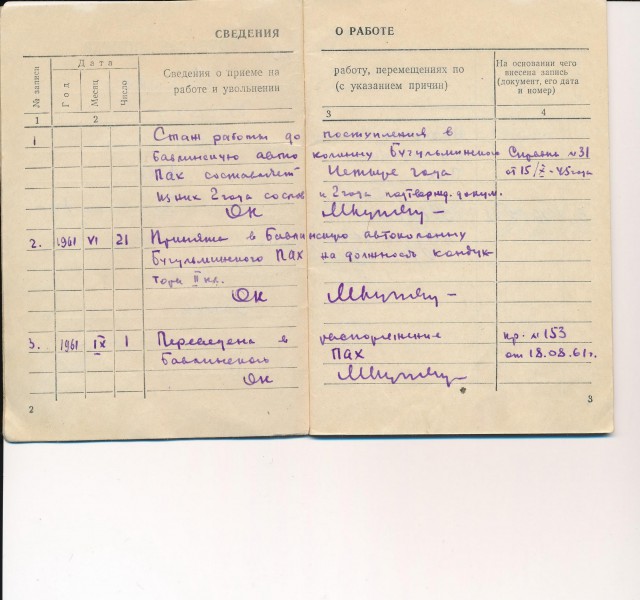 СВЕДЕНИЯ О РАБОТЕ
№ записи
Дата
Год
Месяц
Число
Сведения о приеме на работу, перемещениях по
работе и увольнении (с указанием причин)
На основании чего
внесена запись
(документ, его дата
и номер)
1 2 3 4
1 Стаж работы до поступления в
Бавлинскую авто колонну Бугульминского Справка №31
ПАХ составляет Четыре года от 15/X-45 года
из них 2 года со слов и 2 года подтвержд. докум.
ОК
2. 1961 VI 21 Принята в Бавлинскую автоколонну
Бугульминского ПАХ на должность кондук
тора II кл.
ОК
3. 1961 IX 1 Переведена в распоряжение пр. №153
Бавлинского ПАХ от 18.08.61г.
ОК
2 3